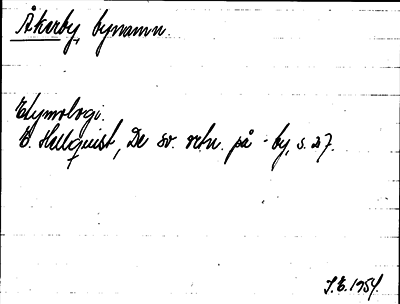 Åkerby, bynamn.
Etymologi.
E. Hellquist, De sv. ortn. på -by, s. 27.
J.E. 1954.